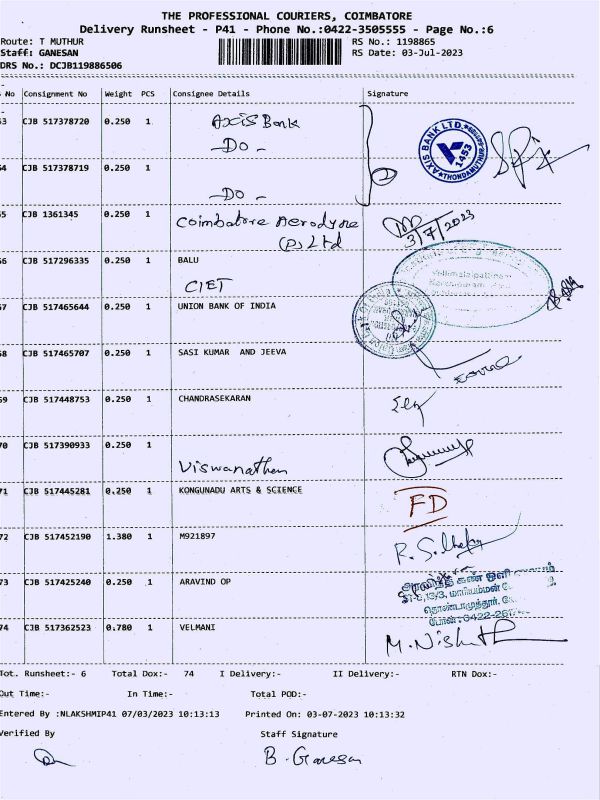 THE PROFESSIONAL COURIERS, COIMBATORE
Delivery Runsheet - P41 - Phone No.:0422-3505555 - Page No.:6
Route: T MUTHUR
RS No.: 1198865
Staff: GANESAN
RS Date: 03-Jul-2023
DRS No.: DCJB119886506
No Consignment No Weight PCS Consignee Details Signature
CJB 517378720 0.250 1 Axis Bank
AXIS BANK LTD. THONDAMUTHUR 1453
- Do -
CJB 517378719 0.250 1
- Do -
CJB 1361345 0.250 1 Coimbatore Aerodyne
(P) Ltd
3/7/2023
CJB 517296335 0.250 1 BALU
CIET
CJB 517465644 0.250 1 UNION BANK OF INDIA
CJB 517465707 0.250 1 SASI KUMAR AND JEEVA
CJB 517448753 0.250 1 CHANDRASEKARAN
CJB 517390933 0.250 1
Viswanathan
CJB 517445281 0.250 1 KONGUNADU ARTS & SCIENCE
FD
72 CJB 517452190 1.380 1 M921897
73 CJB 517425240 0.250 1 ARAVIND OP
அரவிந்த் கண்
மாரியம்மன்
தொண்டாமுத்தூர்,
74 CJB 517362523 0.780 1 VELMANI
M. Nishanth
Tot. Runsheet:- 6 Total Dox:- 74 I Delivery:- II Delivery:- RTN Dox:-
Out Time:- In Time:- Total POD:-
Entered By :NLAKSHMIP41 07/03/2023 10:13:13 Printed On: 03-07-2023 10:13:32
Verified By Staff Signature
B. Ganesan